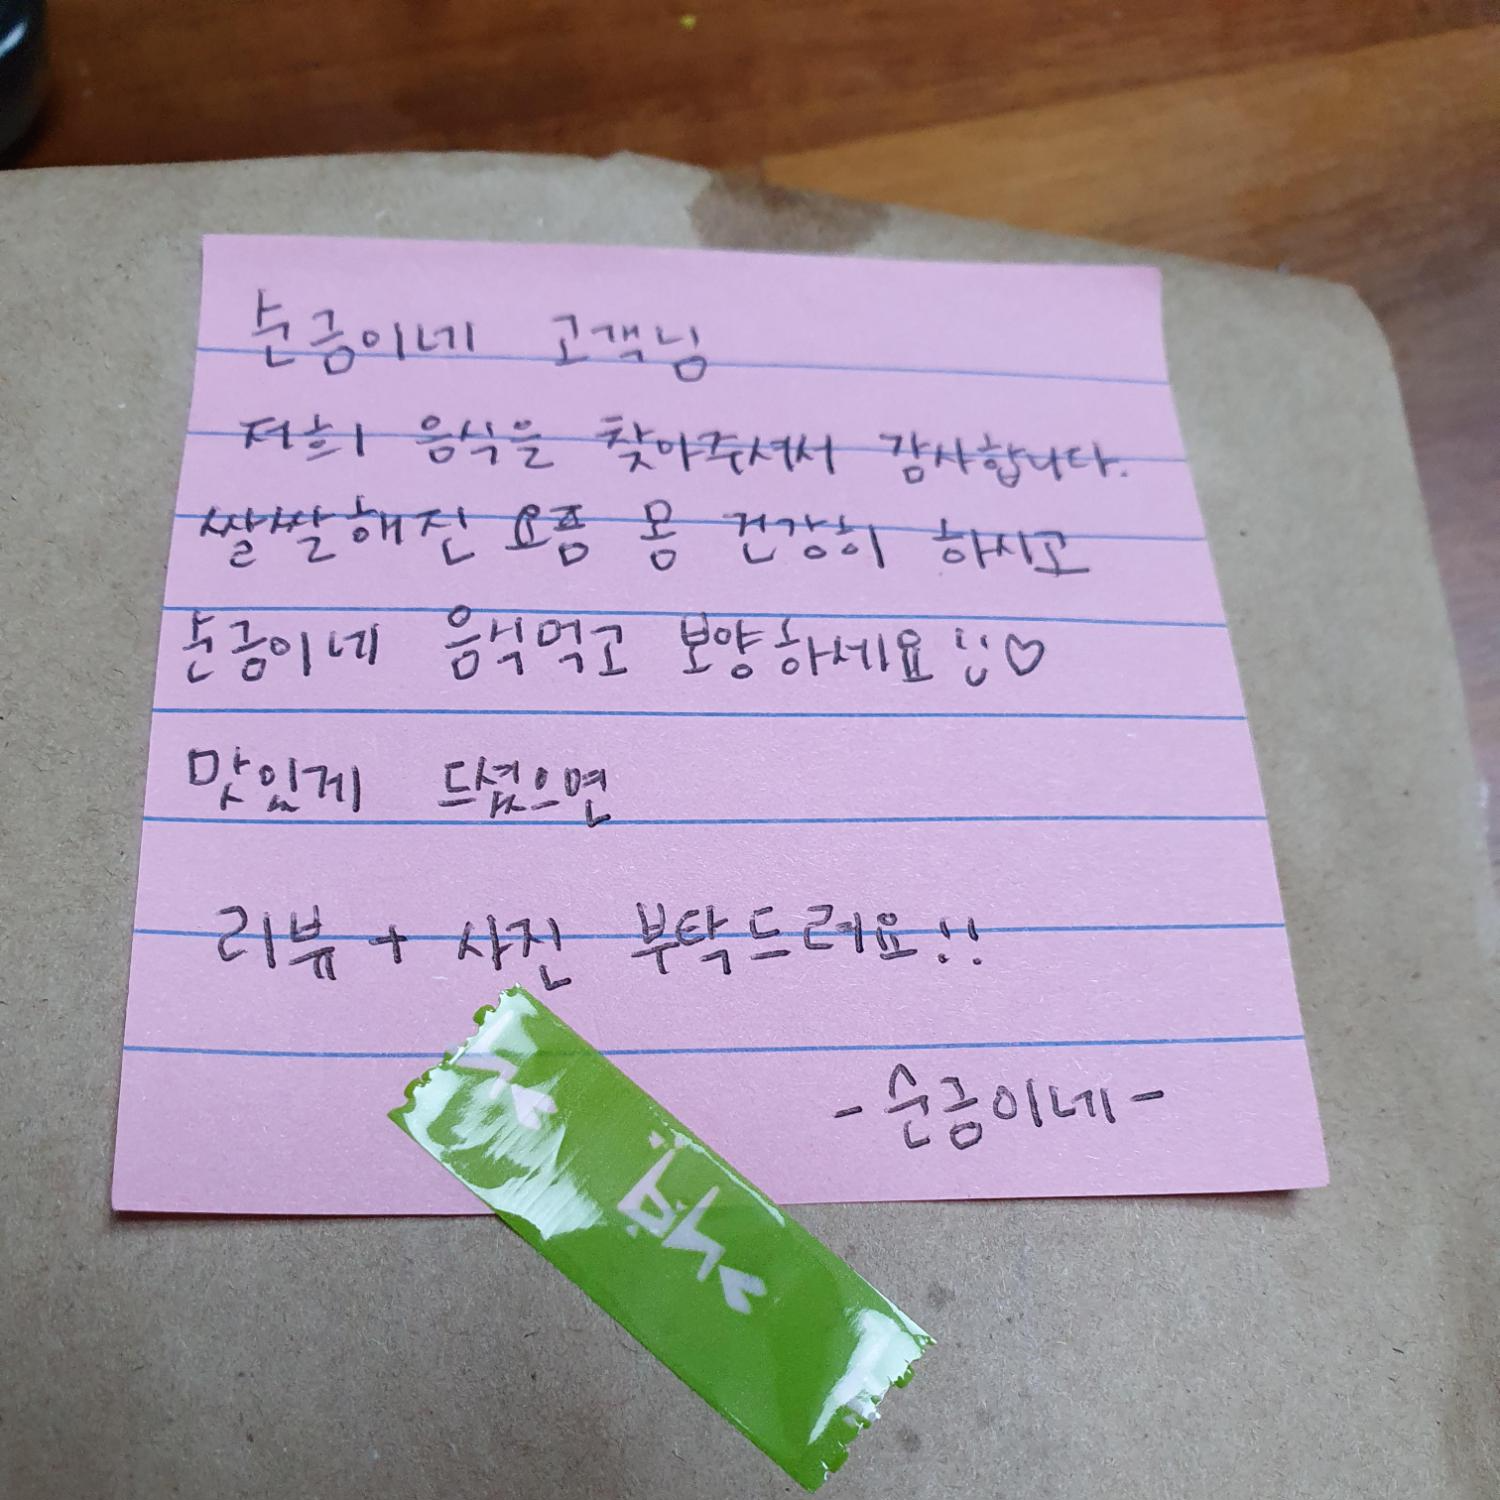 순금이네 고객님
저희 음식을 찾아주셔서 감사합니다.
쌀쌀해진 요즘 몸 건강히 하시고
순금이네 음식먹고 보양하세요!! ♡
맛있게 드셨으면
리뷰 + 사진 부탁드려요!!
- 순금이네 -